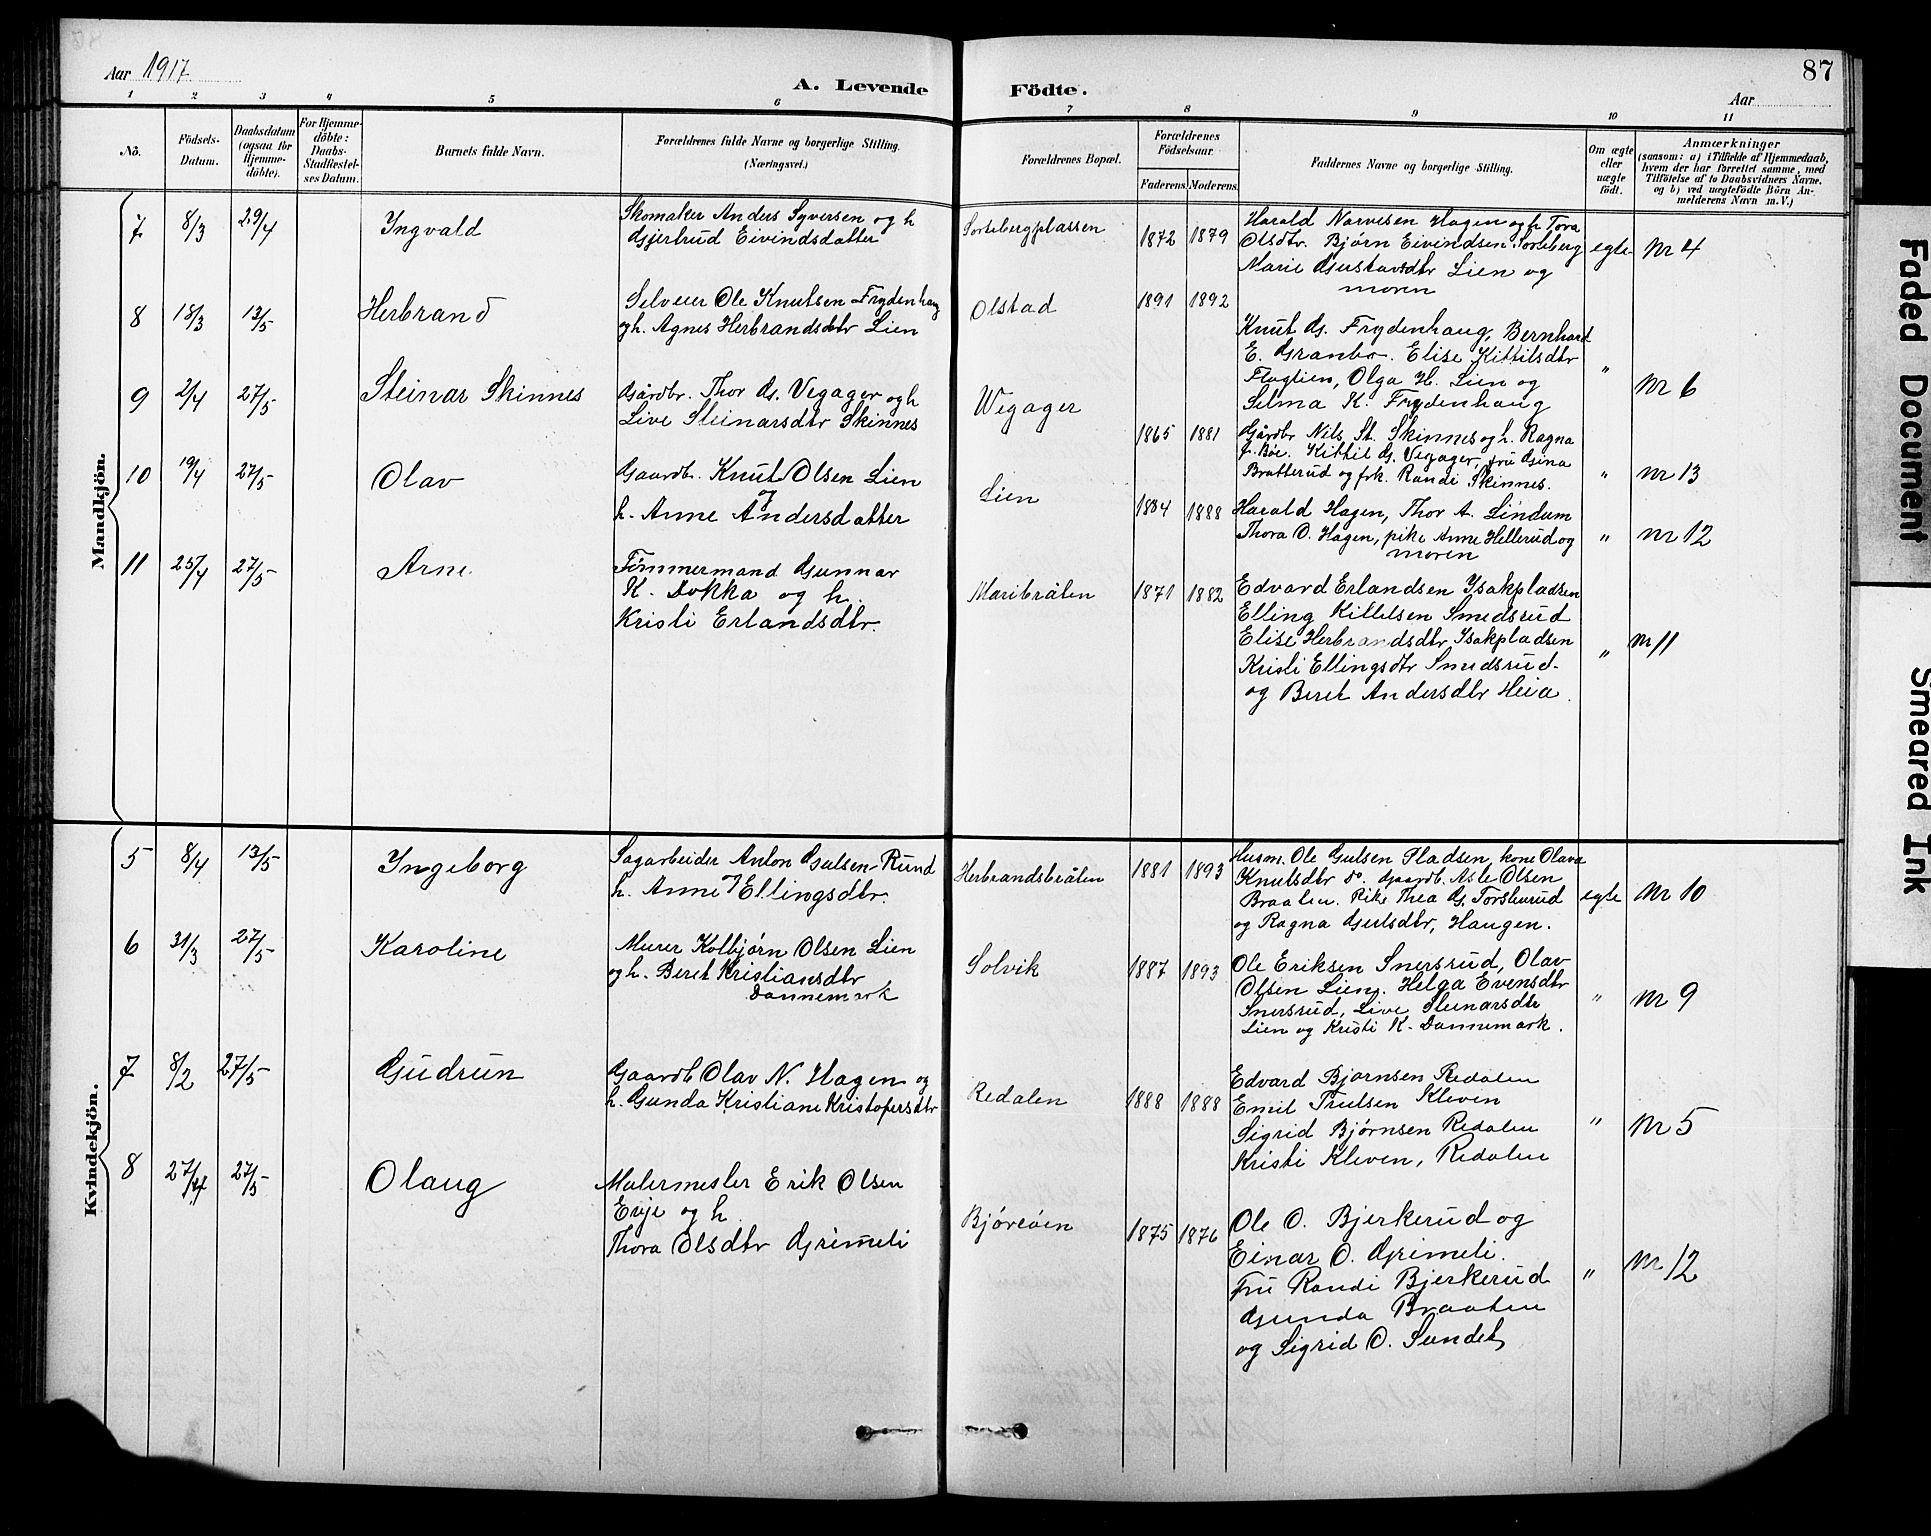 Aar 1917
A. Levende Födte.
87
Aar
1 2 3 4 5 6 7 8 9 10 11
No.
Födsels-Datum.
Daabsdatum (ogsaa for Hjemme-döbte).
For Hjemme-döbte: Daabs-Stadfæstel-ses Datum.
Barnets fulde Navn.
Forældrenes fulde Navne og borgerlige Stilling. (Næringsvei.)
Forældrenes Bopæl.
Forældrenes Födselsaar.
Faderens. Moderens.
Faddernes Navne og borgerlige Stilling.
Om ægte eller uægte födt.
Anmærkninger (saasom: a) i Tilfælde af Hjemmedaab, hvem der har forrettet samme, med Tilföielse af to Daabsvidners Navne, og b) ved uægtefödte Börn An-melderens Navn m. V.)
Mandkjön.
7 8/3 29/4 Ingvald
Skomaker Anders Syversen og h
Gjertrud Eivindsdatter
Sortebergplassen 1872 1879
Harald Narvesen Hagen og h Tora
Olsdtr. Bjørn Eivindsen Sorteberg
Marie Gustavsdtr Lien og
moren
egte Nr 4
8 18/3 13/5 Herbrand
Selveier Ole Knutsen Frydenhaug
og h. Agnes Herbrandsdtr Lien
Olstad 1891 1892
Knut G. Frydenhaug, Bernhard
E. Granbo. Elise Kittilsdtr
Flagtien, Olga H. Lien og
Selma K. Frydenhaug
" Nr 6
9 2/4 27/5 Steinar Skinnes
Gårdbr. Thor G. Vegager og h
Live Steinarsdtr Skinnes
Wegager 1865 1881
Gårdbr Nils St. Skinnes og h. Ragna
f. Bøe. Kittil G. Vegager, fru Gina
Bratterud og frk. Randi Skinnes.
" Nr 13
10 19/4 27/5 Olav
Gaardb. Knut Olsen Lien
h. Anne Andersdatter
Lien 1884 1888
Harald Hagen, Thor A. Lindum
Thora O. Hagen, pike Anne Hellerud og
moren
" Nr 12
11 25/4 27/5 Arne
Tømmermand Gunnar
K. Dokka og h.
Kristi Erlandsdtr.
Maribråten 1871 1882
Edvard Erlandsen Ysakpladsen
Elling Kittelsen Smedsrud
Elise Herbrandsdtr Ysakpladsen
Kristi Ellingsdtr Smedsrud
og Beret Andersdtr Heia.
" Nr 11
Kvindekjön.
5 8/4 13/5 Ingeborg
Sagarbeider Anton Gulsen-Rund
h. Anne Ellingsdtr.
Herbrandsbråten 1881 1893
Husm. Ole Gulsen Pladsen, kone Olava
Knutsdtr do. Gaardb. Asle Olsen
Braaten. Pike Thea G. Torsterud
og Ragna Gulsdtr, Haugen.
egte Nr 10
6 31/3 27/5 Karoline
Murer Kolbjørn Olsen Lien
og h. Beret Kristiansdtr
Dannemark
Solvik 1887 1893
Ole Eriksen Snersrud, Olav
Olsen Lien. Helga Evensdtr
Snersrud, Live Steinarsdtr
Lien og Kristi K. Dannemark.
" Nr 9
7 8/2 27/5 Gudrun
Gaardb Olav N. Hagen og
h. Gunda Kristiane Kristofersdtr
Redalen 1888 1888
Edvard Bjørnsen Redalen
Emil Trulsen Kleven
Sigrid Bjørnsen Redalen
Kristi Kleven, Redalen
" Nr 5
8 27/4 27/5 Olaug
Malermester Erik Olsen
Evje og h
Thora Olsdtr Grimeli
Bjóreóen 1875 1876
Ole O. Bjerkerud og
Einar O. Grimeli.
Fru Randi Bjerkerud
Gunda Braaten
og Sigrid O. Sundet
" Nr 12
Faded Document
Smeared Ink